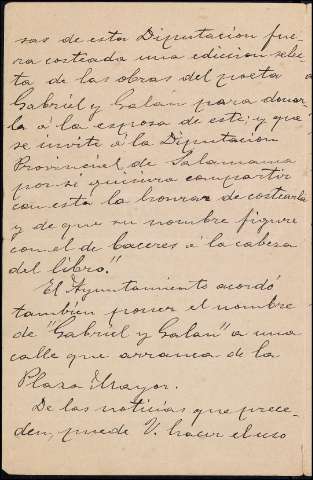 sas de esta Diputación fue-
ra costeada una edicion selec-
ta de las obras del poeta
Gabriel y Galán para donar-
la á la esposa de este; y que
se invite á la Diputacion
Provincial de Salamanca
por si quisiera compartir
con esta la honra de costearla
y de que su nombre figure
con el de Caceres á la cabeza
del libro."
El Ayuntamiento acordó
tambien poner el nombre
de "Gabriel y Galan" a una
calle que arranca de la
Plaza Mayor.
De las noticias que prece-
den, puede V. hacer el uso